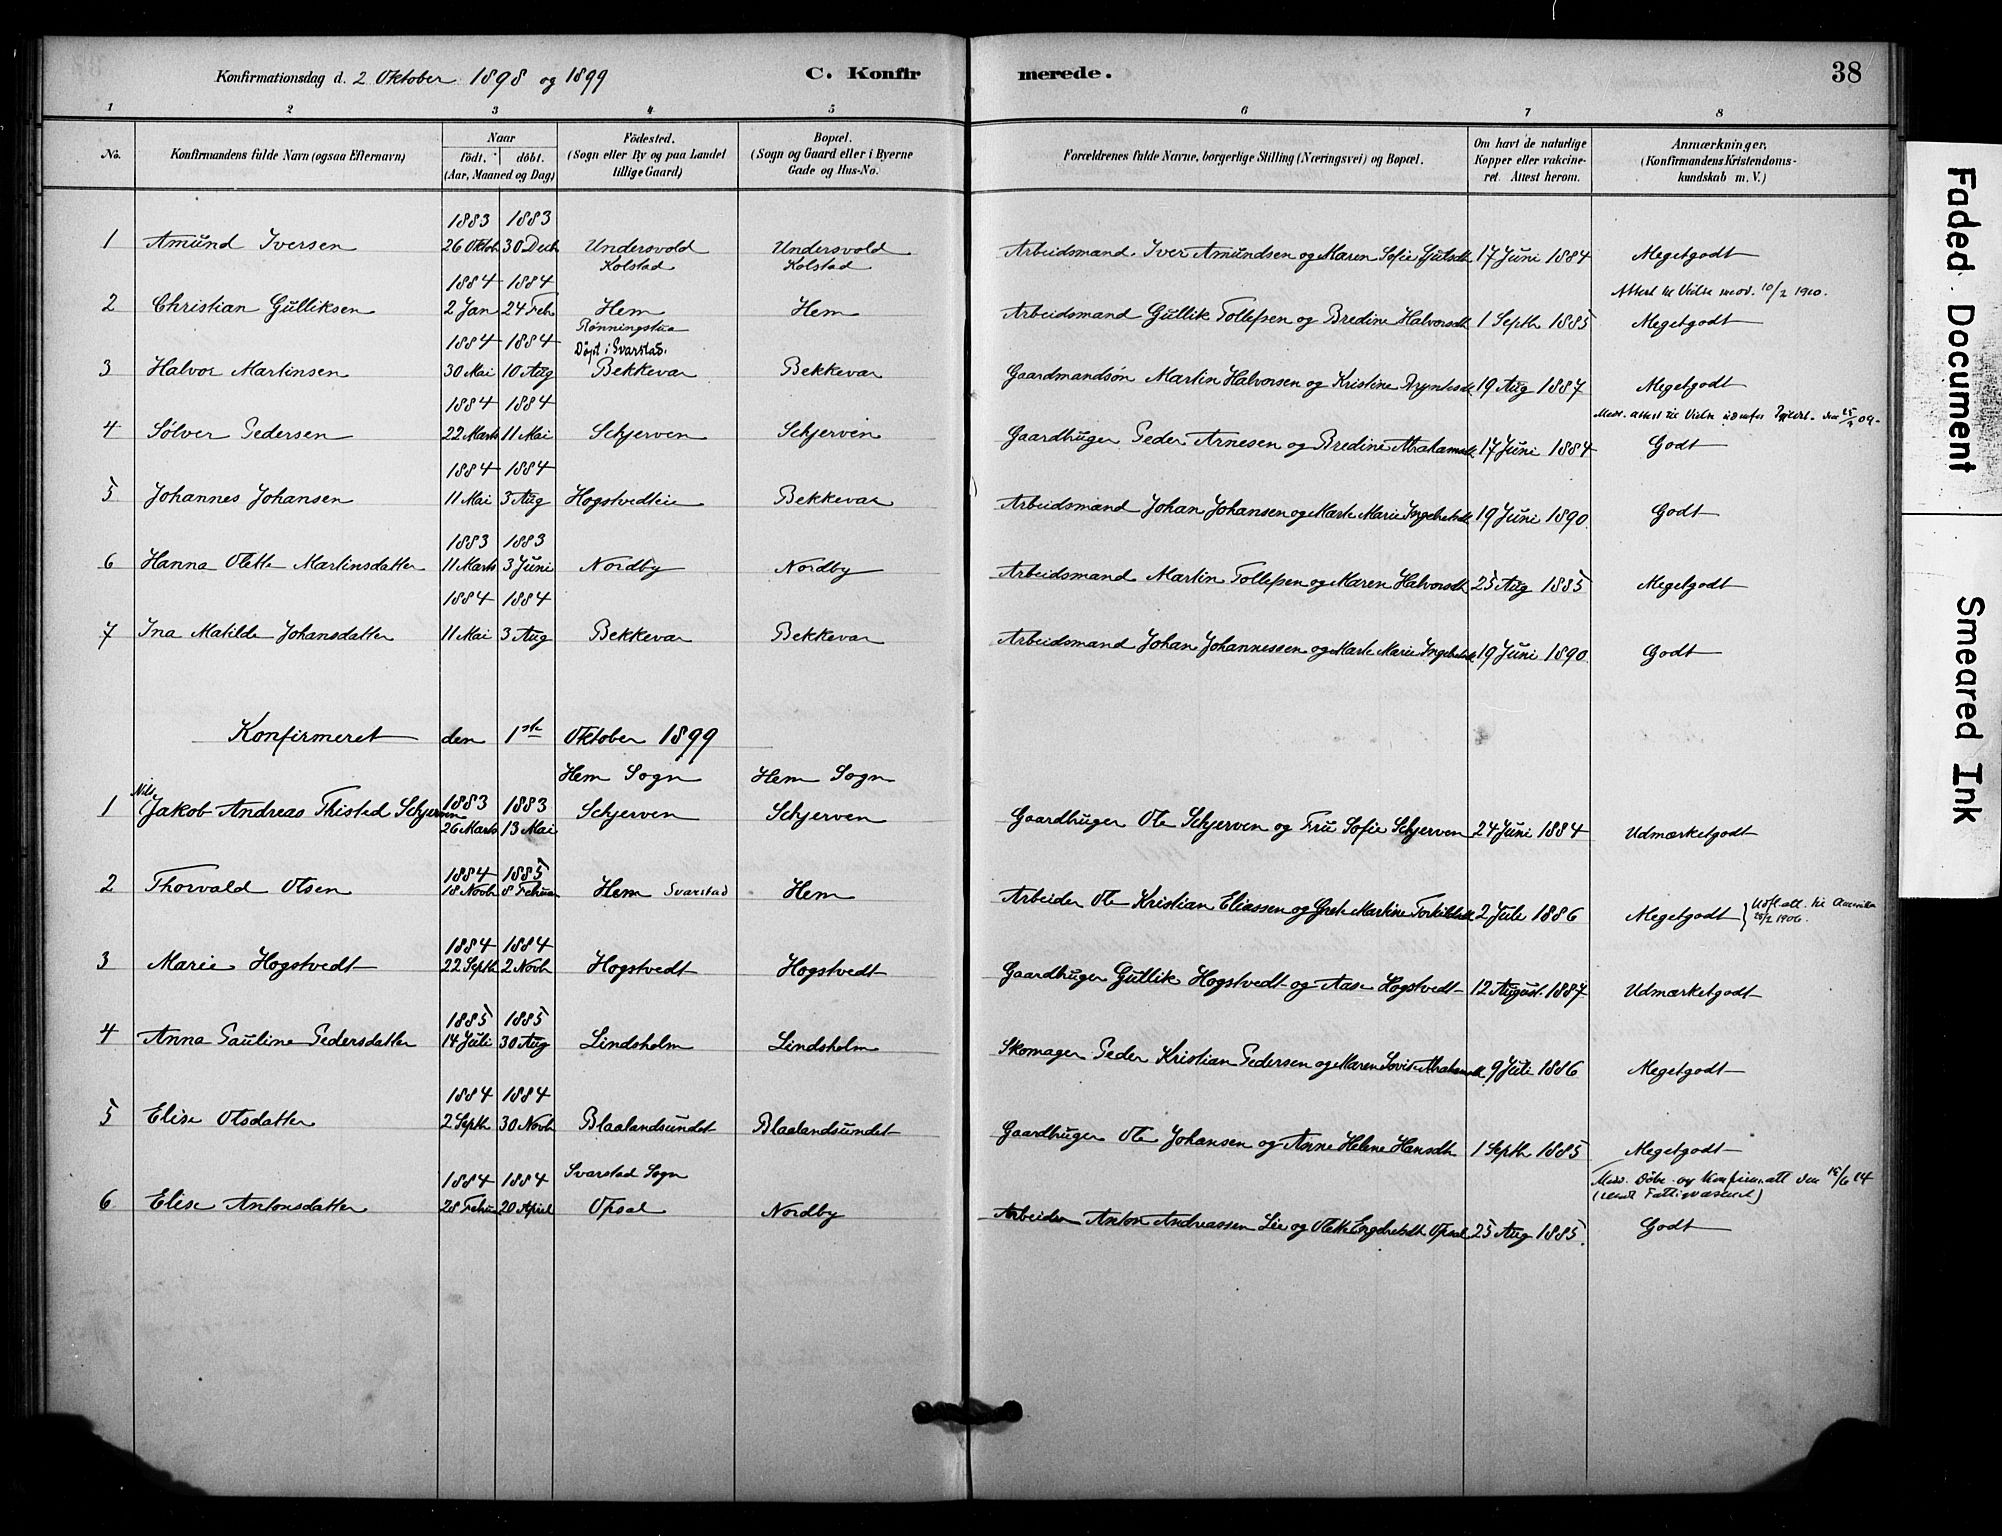 Konfirmationsdag d. 2 Oktober 1898 og 1899 C. Konfirmerede. 38
1 2 3 4 5 6 7 8
No. Konfirmandens fulde Navn (ogsaa Efternavn) Naar födt. döbt. (Aar, Maaned og Dag) Födested. (Sogn eller By og paa Landet tillige Gaard) Bopæl. (Sogn og Gaard eller i Byerne Gade og Hus-No. Forældrenes fulde Navne, borgerlige Stilling (Næringsvei) og Bopæl. Om havt de naturlige Kopper eller vakcineret. Attest herom. Anmærkninger. (Konfirmandens Kristendomskundskab m. V.)
1883 1883
1 Amund Iversen 26 Oktob 30 Decb Undersvold Undersvold Arbeidsmand Iver Amundsen og Maren Sofie 17 Juni 1884 Megetgodt
Kolstad Kolstad
1884 1884
Attest til Vielse medd. 10/2 1910.
2 Christian Gulliksen 2 Jan 24 Feb Hem Hem Arbeidsmand Gullik Tollefsen og Bredine Halvorsdt 1 Septb 1885 Megetgodt
Rønningstua
1884 1884 Døpt i Svarstad.
3 Halvor Martinsen 30 Mai 10 Aug Bekkevar Bekkevar Gaardmandsøn Martin Halvorsen og Kristine 19 Aug 1887 Megetgodt
1884 1884
Medd. attest til Vielse den 09.
4 Sølver Pedersen 22 Marts 11 Mai Schjerven Schjerven Gaardbruger Peder Arnesen og Bredine Abrahamsdt 17 Juni 1884 Godt
1884 1884
5 Johannes Johansen 11 Mai 3 Aug Hogstvedteie Bekkevar Arbeidsmand Johan Johansen og Marte Marie Ingebretsdt 19 Juni 1890 Godt
1883 1883
6 Hanna Olette Martinsdatter 11 Marts 3 Juni Nordby Nordby Arbeidsmand Martin Tollefsen og Maren Halvorsdt 25 Aug 1885 Megetgodt
1884 1884
7 Ina Matilde Johansdatter 11 Mai 3 Aug Bekkevar Bekkevar Arbeidsmand Johan Johannessen og Marte Marie Ingebretsdt 19 Juni 1890 Godt
Konfirmeret den 1ste Oktober 1899
Hem Sogn Hem Sogn
Nils
1883 1883
1 Jakob Andreas Thisted Schjerven 26 Marts 13 Mai Schjerven Schjerven Gaardbruger Ole Schjerven og Fru Sofie Schjerven 24 Juni 1884 Udmærketgodt
1884 1885
2 Thorvald Olsen 18 Novb 8 Februar Hem Svarstad Hem Arbeider Ole Kristian Eliassen og Grete Martine Torkildsdt 2 Juli 1886 Megetgodt Udfl. att. til Amerika
25/2 1906.
1884 1884
3 Marie Hogstvedt 22 Septb 2 Novb Hogstvedt Hogstvedt Gaardbruger Gullik Hogstvedt og Aase Hogstvedt 12 August 1887 Udmærketgodt
1885 1885
4 Anna Pauline Pedersdatter 14 Juli 30 Aug Lindsholm Lindsholm Skomager Peder Kristian Pedersen og Maren Lovise Abrahamsdt 9 Juli 1886 Megetgodt
1884 1884
5 Elise Olsdatter 2 Septb 30 Novb Blaalandsundet Blaalandsundet Gaardbruger Ole Johansen og Anne Helene Hansdt 1 Septb 1885 Megetgodt
1884 1884 Svarstad Sogn
Medd. Døbe- og Konfirm. att den 15/6 14
(sendt Fattigvæsenet)
6 Elise Antonsdatter 28 Februar 20 April Opsal Nordby Arbeider Anton Andreassen Lie og Olette Engebretsdt Opsal 25 Aug 1885. Godt
Faded Document
Smeared Ink